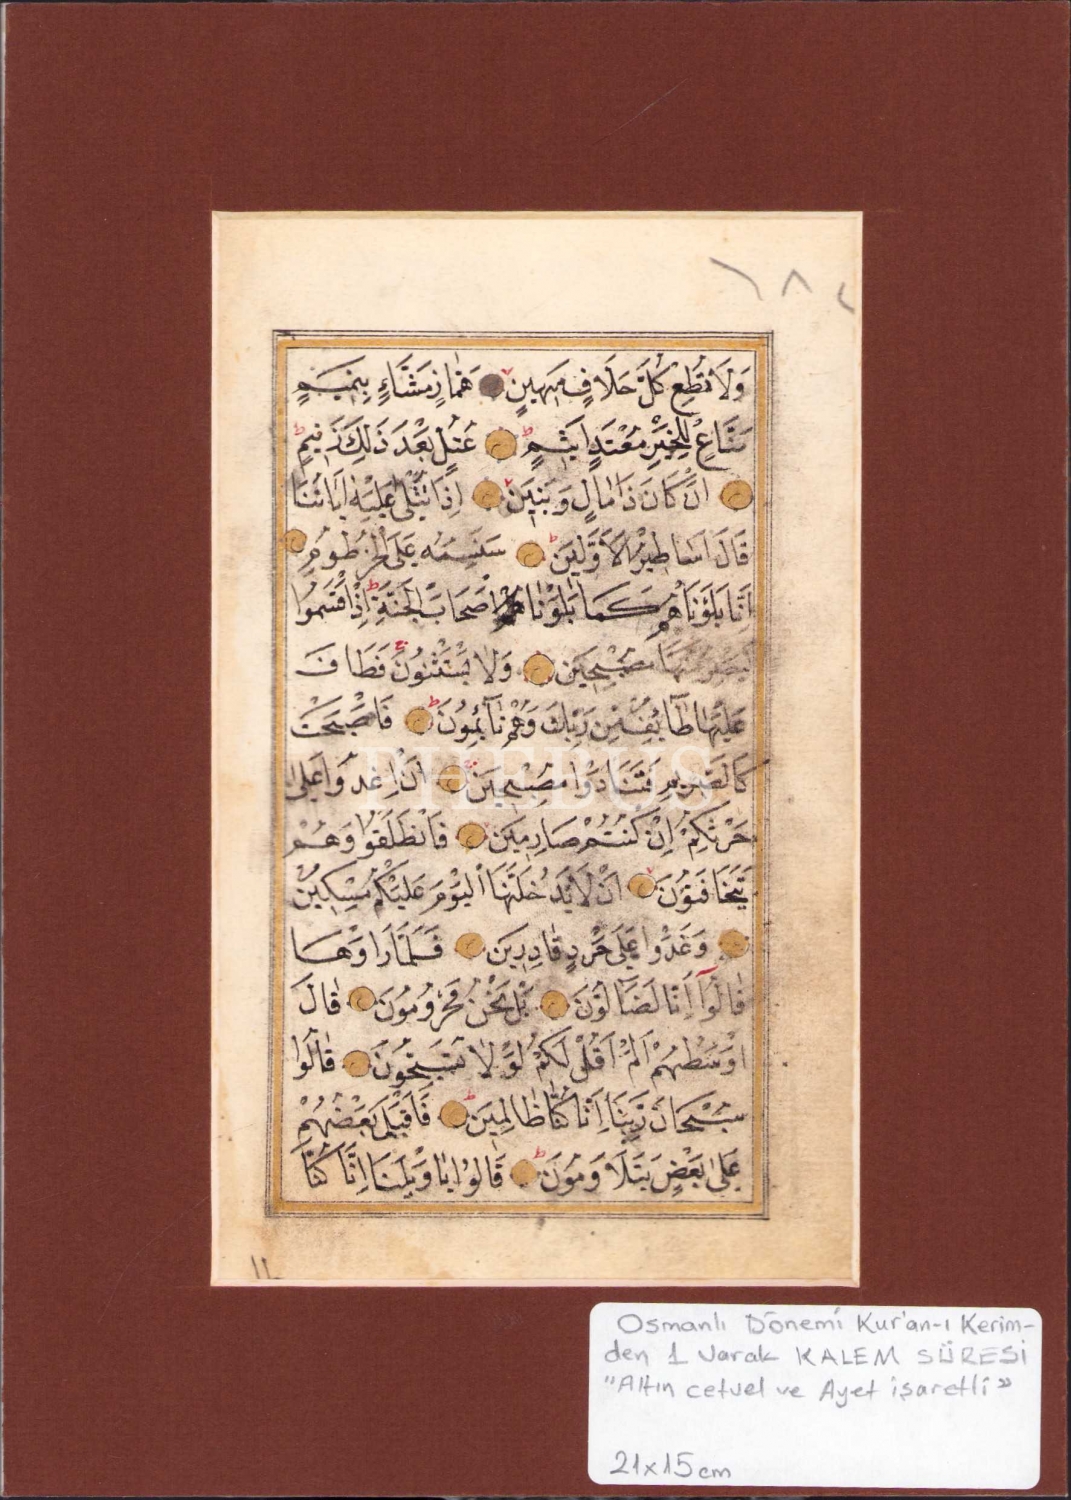 ١٨٤
وَلَا تُطِعْ كُلَّ حَلَّافٍ مَهِينٍ هَمَّازٍ مَشَّاءٍ بِنَمِيمٍ
مَنَّاعٍ لِلْخَيْرِ مُعْتَدٍ اَثِيمٍ عُتُلٍّ بَعْدَ ذَلِكَ زَنِيمٍ
اَنْ كَانَ ذَا مَالٍ وَبَنِينَ اِذَا تُتْلٰى عَلَيْهِ اٰيَاتُنَا
قَالَ اَسَاطِيرُ الْاَوَّلِينَ سَنَسِمُهُ عَلَى الْخُرْطُومِ
اِنَّا بَلَوْنَاهُمْ كَمَا بَلَوْنَا اَصْحَابَ الْجَنَّةِ اِذْ اَقْسَمُوا
لَيَصْرِمُنَّهَا مُصْبِحِينَ وَلَا يَسْتَثْنُونَ فَطَافَ
عَلَيْهَا طَائِفٌ مِنْ رَبِّكَ وَهُمْ نَائِمُونَ فَاَصْبَحَتْ
كَالصَّرِيمِ فَتَنَادَوْا مُصْبِحِينَ اَنِ اغْدُوا عَلٰى
حَرْثِكُمْ اِنْ كُنْتُمْ صَارِمِينَ فَانْطَلَقُوا وَهُمْ
يَتَخَافَتُونَ اَنْ لَا يَدْخُلَنَّهَا الْيَوْمَ عَلَيْكُمْ مِسْكِينٌ
وَغَدَوْا عَلٰى حَرْدٍ قَادِرِينَ فَلَمَّا رَاَوْهَا
قَالُوا اِنَّا لَضَالُّونَ بَلْ نَحْنُ مَحْرُومُونَ قَالَ
اَوْسَطُهُمْ اَلَمْ اَقُلْ لَكُمْ لَوْلَا تُسَبِّحُونَ قَالُوا
سُبْحَانَ رَبِّنَا اِنَّا كُنَّا ظَالِمِينَ فَاَقْبَلَ بَعْضُهُمْ
عَلٰى بَعْضٍ يَتَلَاوَمُونَ قَالُوا يَا وَيْلَنَا اِنَّا كُنَّا
PHEBUS
١١
Osmanlı Dönemi Kur'an-ı Kerim-
den 1 Varak KALEM SÜRESİ
"Altın cetvel ve Ayet işaretli"
21x15cm